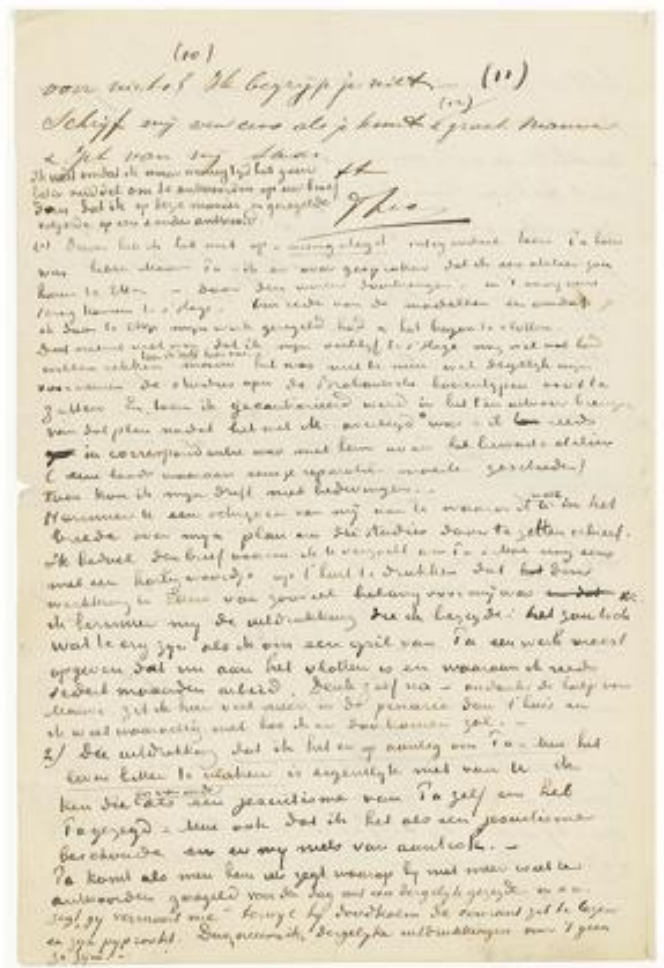 (10)
voor niets? Ik begrijp je niet (11)
Schrijf mij eens als je kunt & groet Mauve (12)
& Jet van mij.
Ik wil omdat ik maar
liever om te antwoorden op uw brief
dan dat ik op deze manier geregelde tt
volgorde op een ander antwoord Theo
1) Daar heb ik het niet op toen Pa hier
was Maar Pa & ik er over gesproken dat ik een atelier zou
huren te Etten – daar den winter doorbrengen – in 't voorjaar
terug komen te s'Hage. Om rede van de modellen en omdat
ik daar te Etten mijn werk geregeld had & het begon te vlotten.
Dat neemt niet weg dat ik mijn verblijf te s'Hage nog wel wat had
willen rekken maar het was niettemin wel degelijk mijn
voornemen de studies over de Brabantsche boerentypen voort te
zetten En toen ik werd in het ten uitvoer brengen
van dat plan nadat het met M. overlegd was & ik reeds
in correspondentie was met hem over het bewuste atelier
( eene loods waaraan eenige reparatie moest geschieden )
toen kon ik mijn drift niet bedwingen. –
Herinner U een schrijven van mij aan U waarin ik U in het
breede over mijn plan om die studies door te zetten schreef.
Ik bedoel den brief waarin ik U verzocht aan Pa & Moe nog eens
met een hartig woordje op 't hart te drukken dat die
te Etten van zooveel belang voor mij was
ik herinner mij de uitdrukking die ik bezigde: het zou toch
wat te erg zijn als ik om een gril van Pa een werk moest
opgeven dat nu aan het vlotten is en waaraan ik reeds
sedert maanden arbeid. Denk zelf na – ondanks de hulp van
Mauve zit ik hier veel meer in de penarie dan t'huis en
ik weet waarachtig niet hoe ik er doorkomen zal. –
2/ Die uitdrukking dat ik het er op aanleg om Pa & Moe het
leven bitter te maken is eigentlijk niet van U ik
ken die als een jesuitisme van Pa zelf en heb
Pa gezegd & Moe ook dat ik het als een jesuitisme
beschouwde en er mij niets van aantrok. –
Pa komt als men hem iets zegt waarop hij niet meer weet te
antwoorden geregeld voor den dag met een dergelijk gezegde en
zegt "gij vermoordt mij" terwijl hij doodkalm de courant zit te lezen
en zijn pijp rookt. Dus neem ik dergelijke uitdrukkingen voor 't geen
ze zijn. –